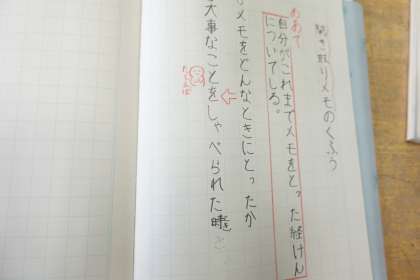 聞き取りメモのくふう
めあて
自分がこれまでメモをとった経けん
についてしる。
メモをどんなときにとったか
大事なことをしゃべられた時を